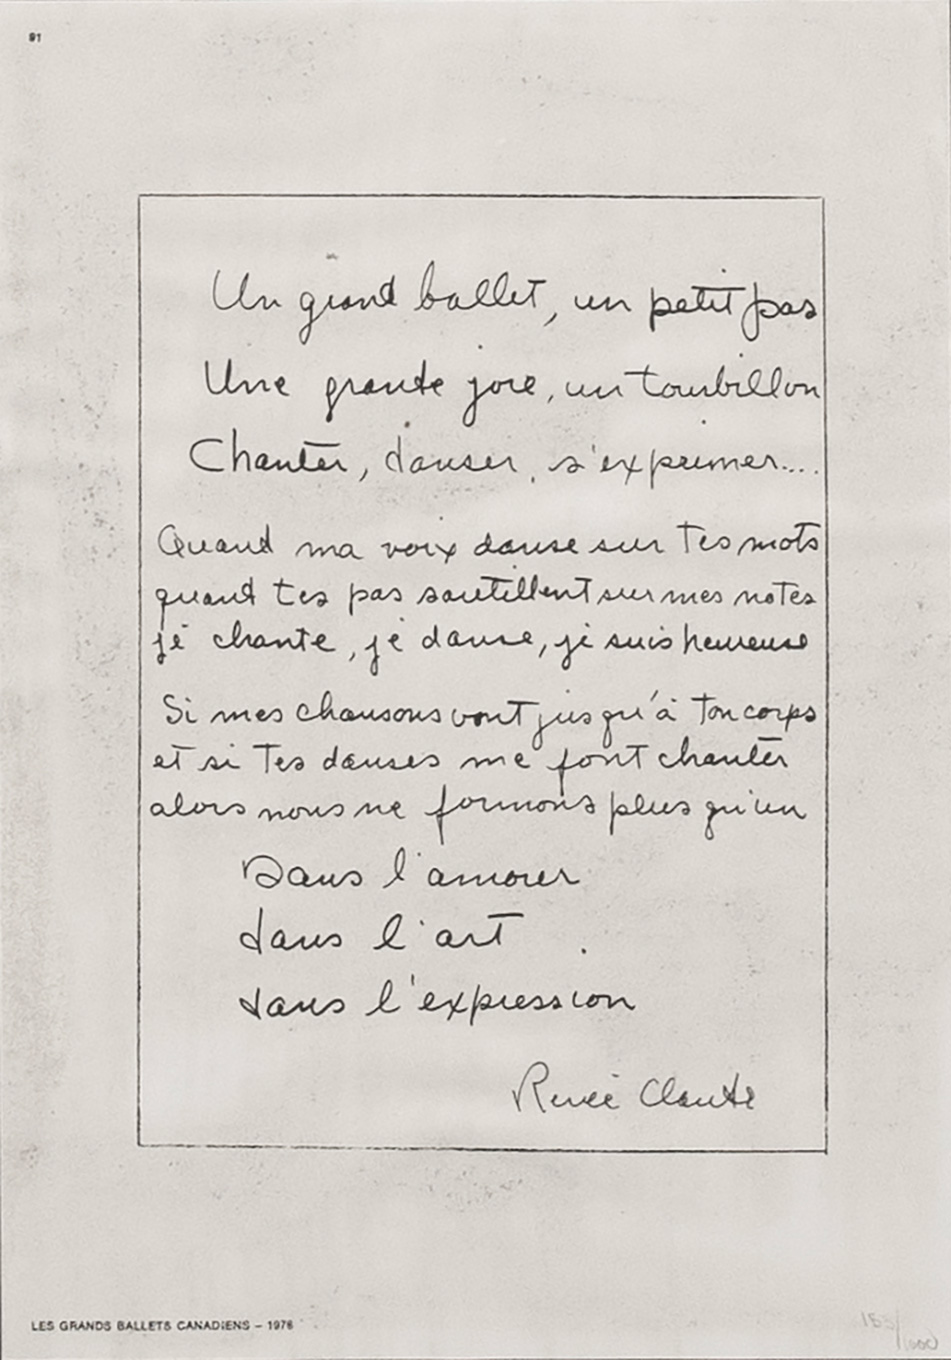 91
Un grand ballet, un petit pas
Une grande joie, un tourbillon
Chanter, danser, s'exprimer....
Quand ma voix danse sur tes mots
quand tes pas sautillent sur mes notes
je chante, je danse, je suis heureuse
Si mes chansons vont jusqu'à ton corps
et si tes danses me font chanter
alors nous ne formons plus qu'un
Dans l'amour
dans l'art
dans l'expression
Renée Claude
LES GRANDS BALLETS CANADIENS – 1976
/1000